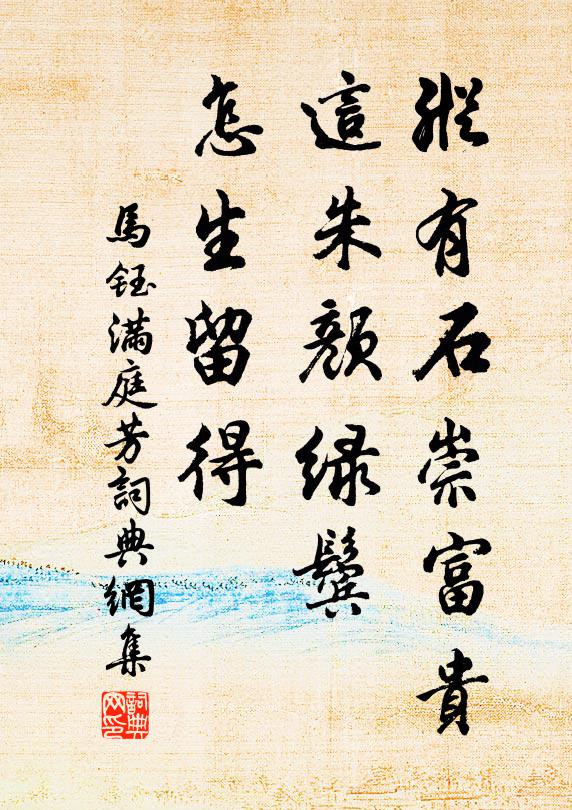 縱有石崇富貴
這朱顏綠鬢
怎生留得
馬鈺滿庭芳詞典網集
詞典
网印